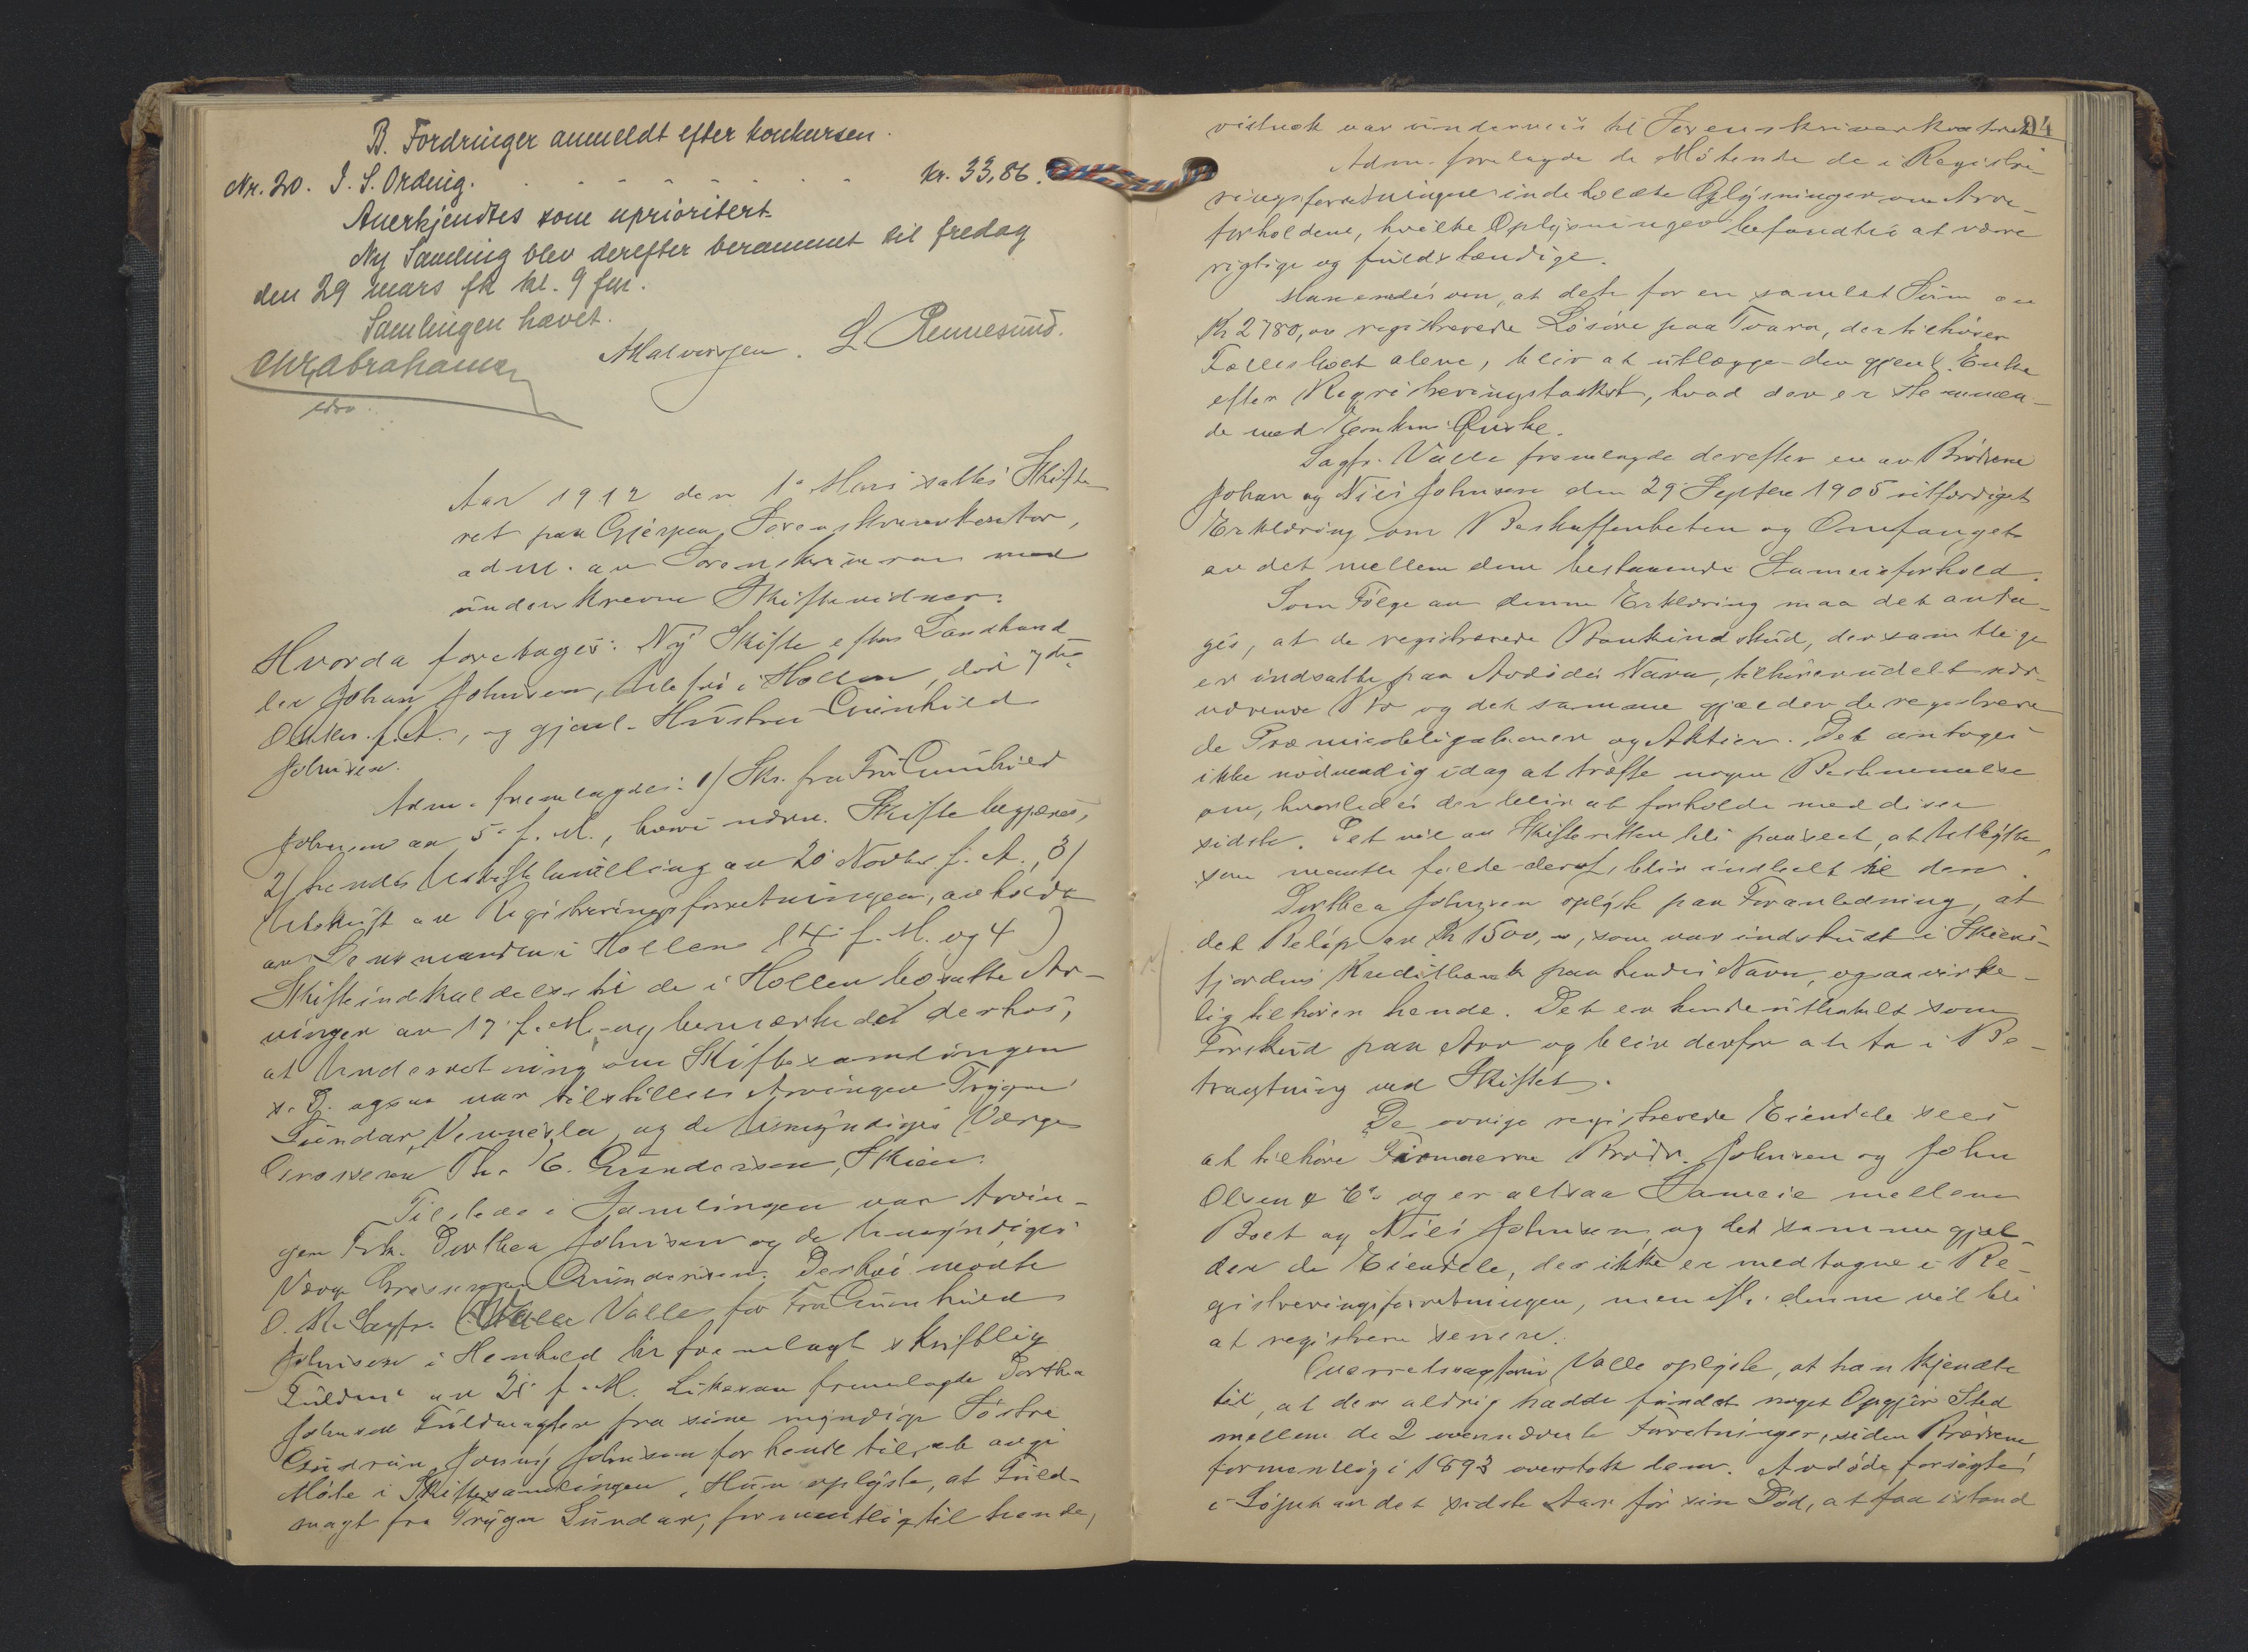 B. Fordringer anmeldt efter konkursen.
Nr. 20. J. S. Ording. - - - - - - - kr. 33,86.
Anerkjendtes som uprioritert.
Ny Samling blev derefter berammet til fredag
den 29 mars kl. 9 fm.
Samlingen hævet.
Chr Abrahamsen
A Halvorsen. L Rennesund.
Aar 1912 den 1. Mars sattes Skifte
ret paa Gjerpen Sorenskriverkontor,
adm. av Sorenskriveren med
underskrevne Skiftevidner.
Hvorda foretages: Ny Skifte efter Landhand
ler Johan Johnsen, Ulefos i Hollen, død 7de
Oktbr. f. A., og gjenl. Hustru Gunhild
Johnsen.
Adm. fremlagdes: 1/ Skr. fra Fru Gunhild
Johnsen av 5. f. M., hvori nærv. Skifte begjæres,
2/ hendes Uskiftebevilling av 20 Novbr f. A., 3/
Utskrift av Registreringsforretningen, avholdt
av Lensmanden i Hollen 14. f. M. og 4)
Skifteindkaldelse til de i Hollen bosatte Ar-
vinger av 17. f. M. og bemerkedes derhos,
at Underretning om Skiftesamlingen
s. D. ogsaa var tilstillet Arvingen Trygve
Lundar, Vennesla, og de Umyndiges Værge
Grosserer Th. C. Gundersen, Skien.
Tilstede i Samlingen var Arvin-
gen Frk. Dorthea Johnsen og de Umyndiges
Værge Grosserer Gundersen. Derhos mødte
O. R. Sagfr. Valle for Fru Gunhild
Johnsen i Henhold til fremlagt skriftlig
Fuldm. av 28. f. M. Likesaa fremlagte Dorthea
Johnsen Fuldmagter fra sine myndige Søstre
Gudrun Jonny Johnsen for hende til at avgi
Møte i Skiftesamlingen. Hun oplyste, at Fuld-
magt fra Trygve Lundar, formentlig til hende,
94
vistnok var underveis til Sorenskriverkontoret
Adm. forelagde de Møtende de i Registre-
ringsforretningen indeholdte Oplysninger om Arve-
forholdene, hvilke Oplysninger befandtes at være
rigtige og fuldstændige.
Man enedes om, at det for en samlet Sum av
Kr 2780, av registrerede Løsøre paa Tvara, der tilhører
Fællesboet alene, blir at utlægge den gjenl. Enke
efter Registreringstakst, hvad der er stemmen-
de med Enkens Ønske.
Sagfr. Valle fremlagde derefter en av Brødrene
Johan og Nils Johnsen den 29. Septbr 1905 utfærdiget
Erklæring om Beskaffenheten og Omfanget
av det mellem dem bestaaende Sameieforhold.
Som Følge av denne Erklæring maa det anta-
ges, at de registrerede Bankindskud, der samtlige
er indsatte paa Avdødes Navn, tilhører udelt nær-
værende Bo og det samme gjælder de registrere
de Præmieobligationer og Aktier. Det antages
ikke nødvendig idag at træffe nogen Bestemmelse
om, hvorledes der blir at forholde med disse
sidste. Det vil av Skifteretten bli paaseet, at Utbytte,
som maatte falde derpaa, blir indhentet til dem.
Dorthea Johnsen oplyste paa Foranledning, at
det Beløp av Kr 1500, -, som var indskudt i Skiens-
fjordens Kreditbank paa hendes Navn, ogsaa virke-
lig tilhører hende. Det er hende utbetalt som
Forskud paa Arv og blir derfor at ta i Be-
tragtning ved Skiftet.
De øvrige registrerede Eiendele sees
at tilhøre Firmaerne Brødr. Johnsen og John
Olsen & Co og er altsaa Sameie mellem
Boet og Nils Johnsen, og det samme gjæl-
der de Eiendele, der ikke er medtagne i Re-
gistreringsforretningen, men efter denne vil bli
at registrere senere.
Overretssagfører Valle oplyste, at han kjendte
til, at der aldrig hadde fundet noget Opgjør Sted
mellem de 2 ovennævnte Forretninger, siden Brødrene
formentlig i 1893 overtok dem. Avdøde forsøgte
i Løpet av det sidste Aar før sin Død, at faa istand